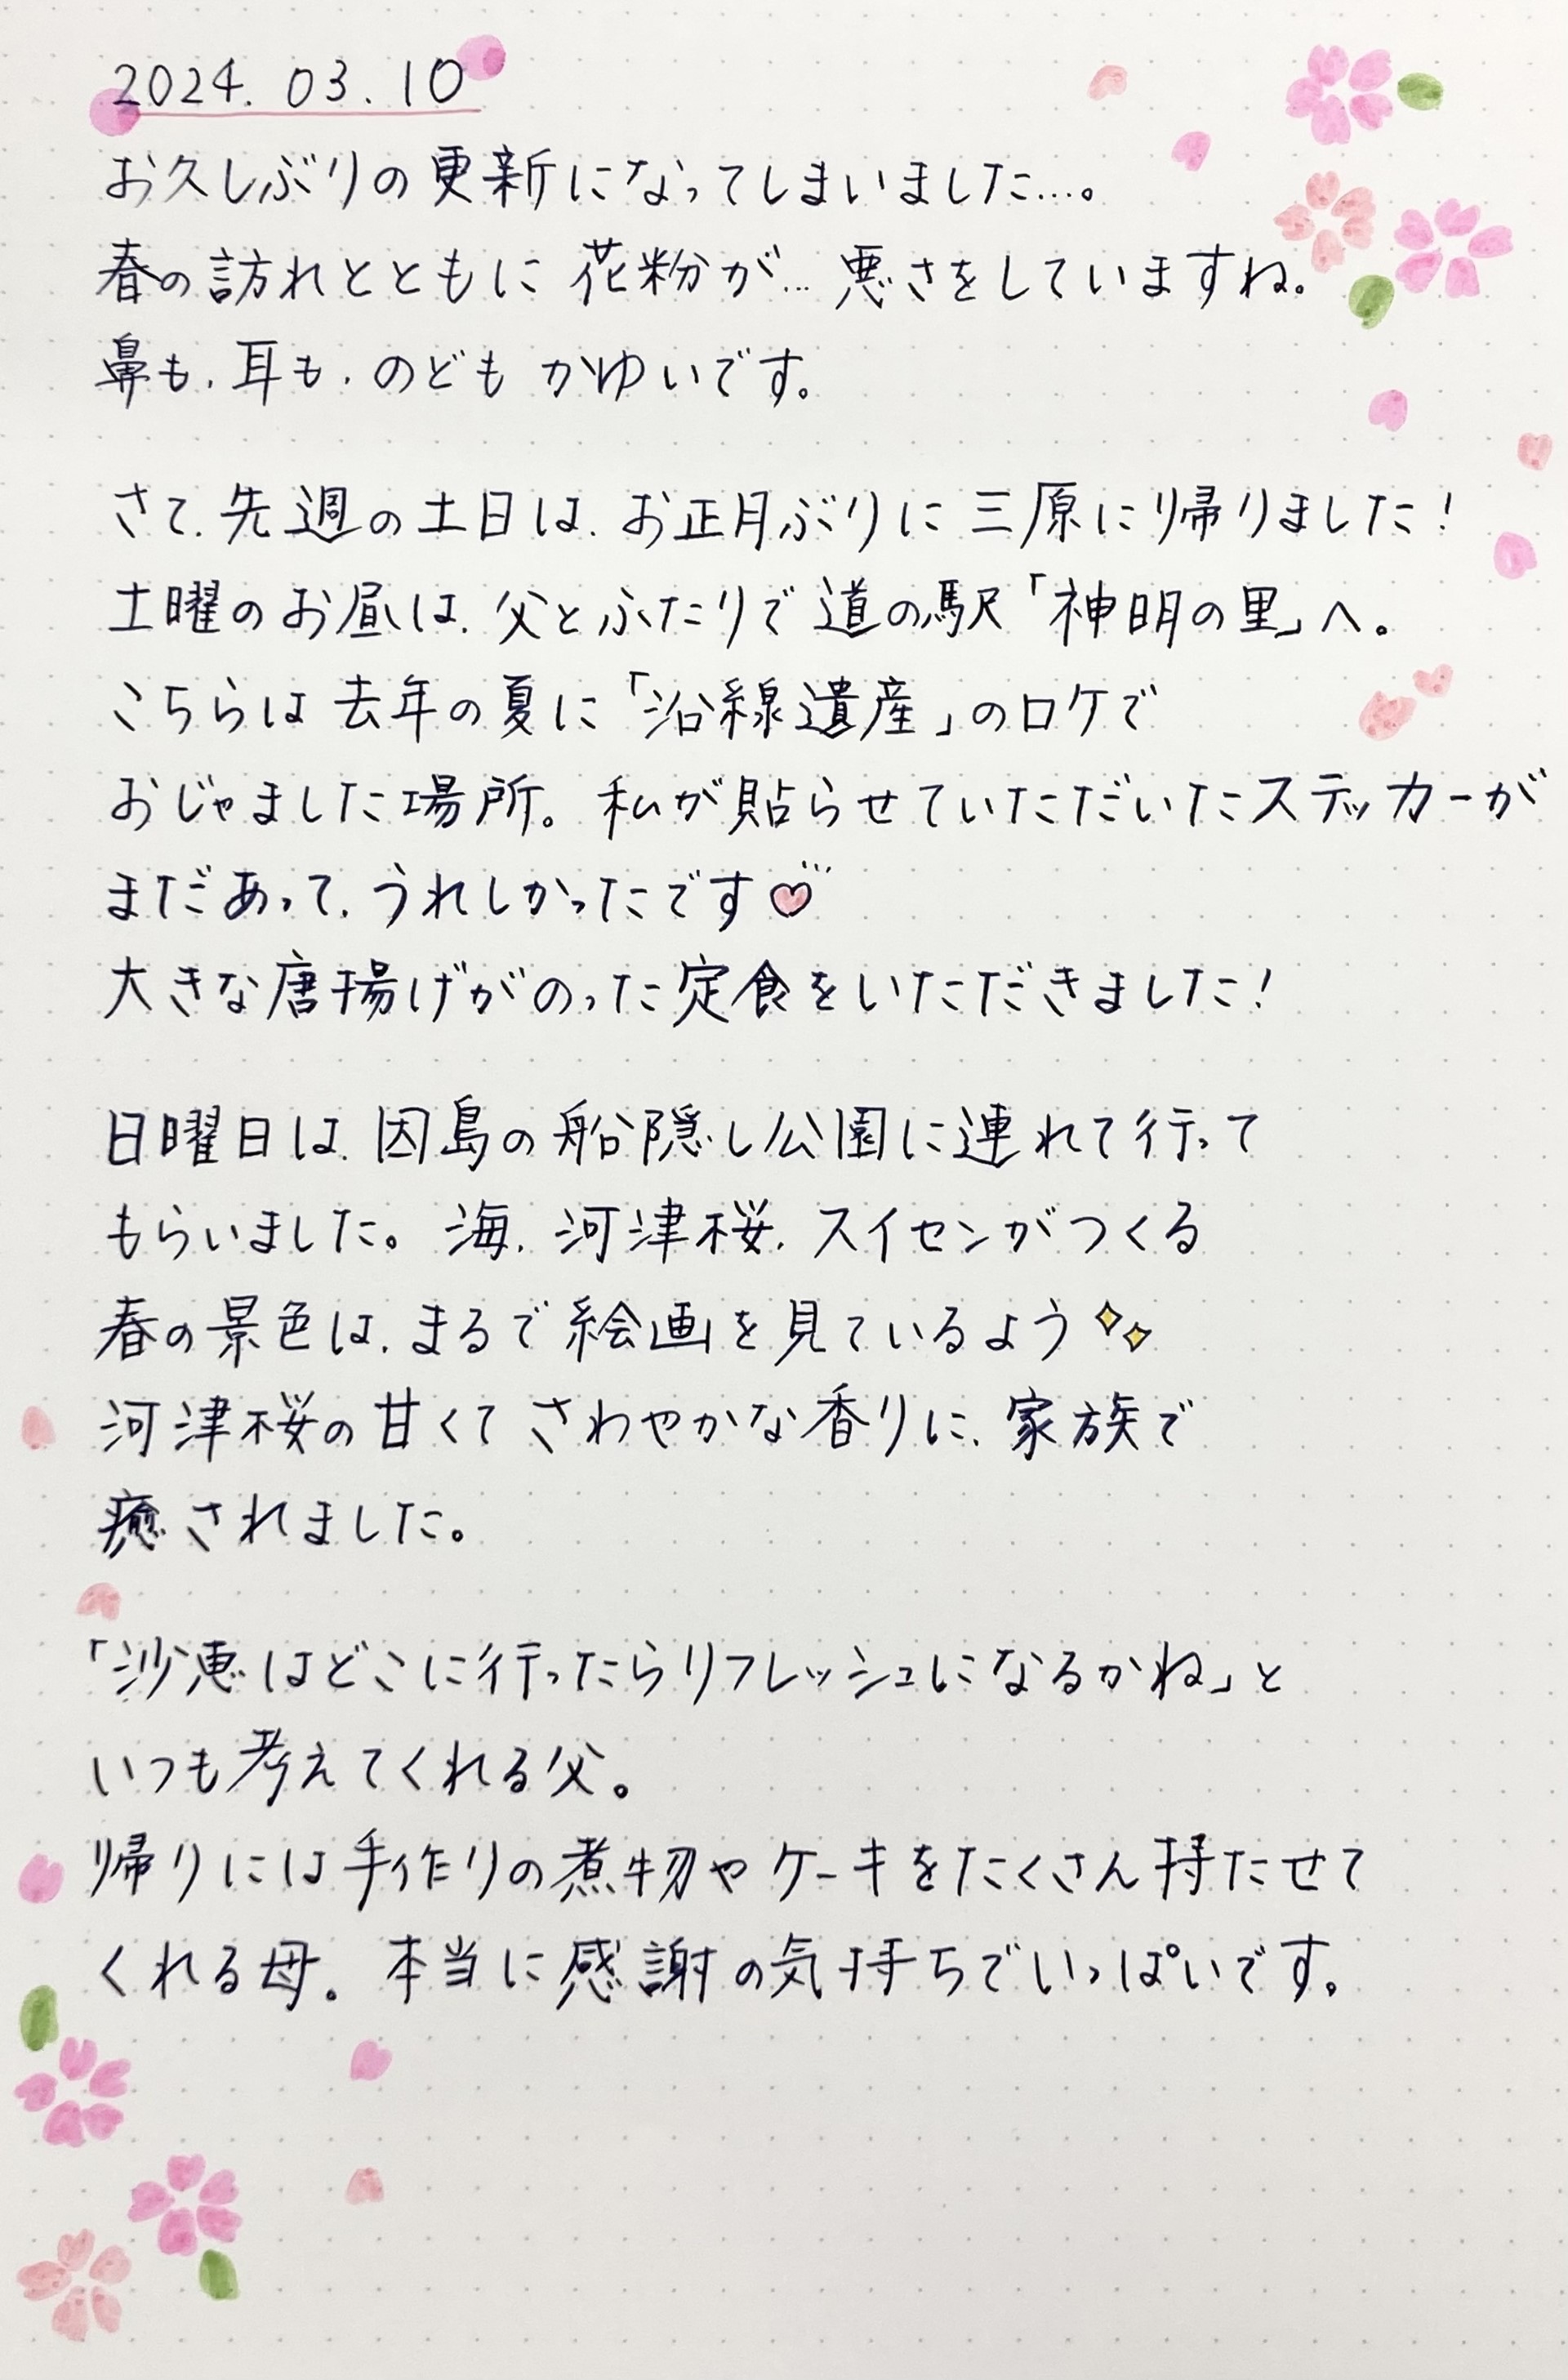 2024.03.10
お久しぶりの更新になってしまいました…。
春の訪れとともに 花粉が… 悪さをしていますね。
鼻も、耳も、のども かゆいです。
さて、先週の土日は、お正月ぶりに 三原に帰りました!
土曜のお昼は、父とふたりで 道の駅「神明の里」へ。
こちらは 去年の夏に「沿線遺産」のロケで
おじゃました場所。私が貼らせていただいたステッカーが
まだあって、うれしかったです♡
大きな唐揚げがのった定食をいただきました!
日曜日は、因島の船隠し公園に連れて行って
もらいました。海、河津桜、スイセンがつくる
春の景色は、まるで絵画を見ているよう
河津桜の甘くて さわやかな香りに、家族で
癒されました。
「沙恵はどこに行ったらリフレッシュになるかね」と
いつも考えてくれる父。
帰りには手作りの煮物やケーキをたくさん持たせて
くれる母。本当に感謝の気持ちでいっぱいです。